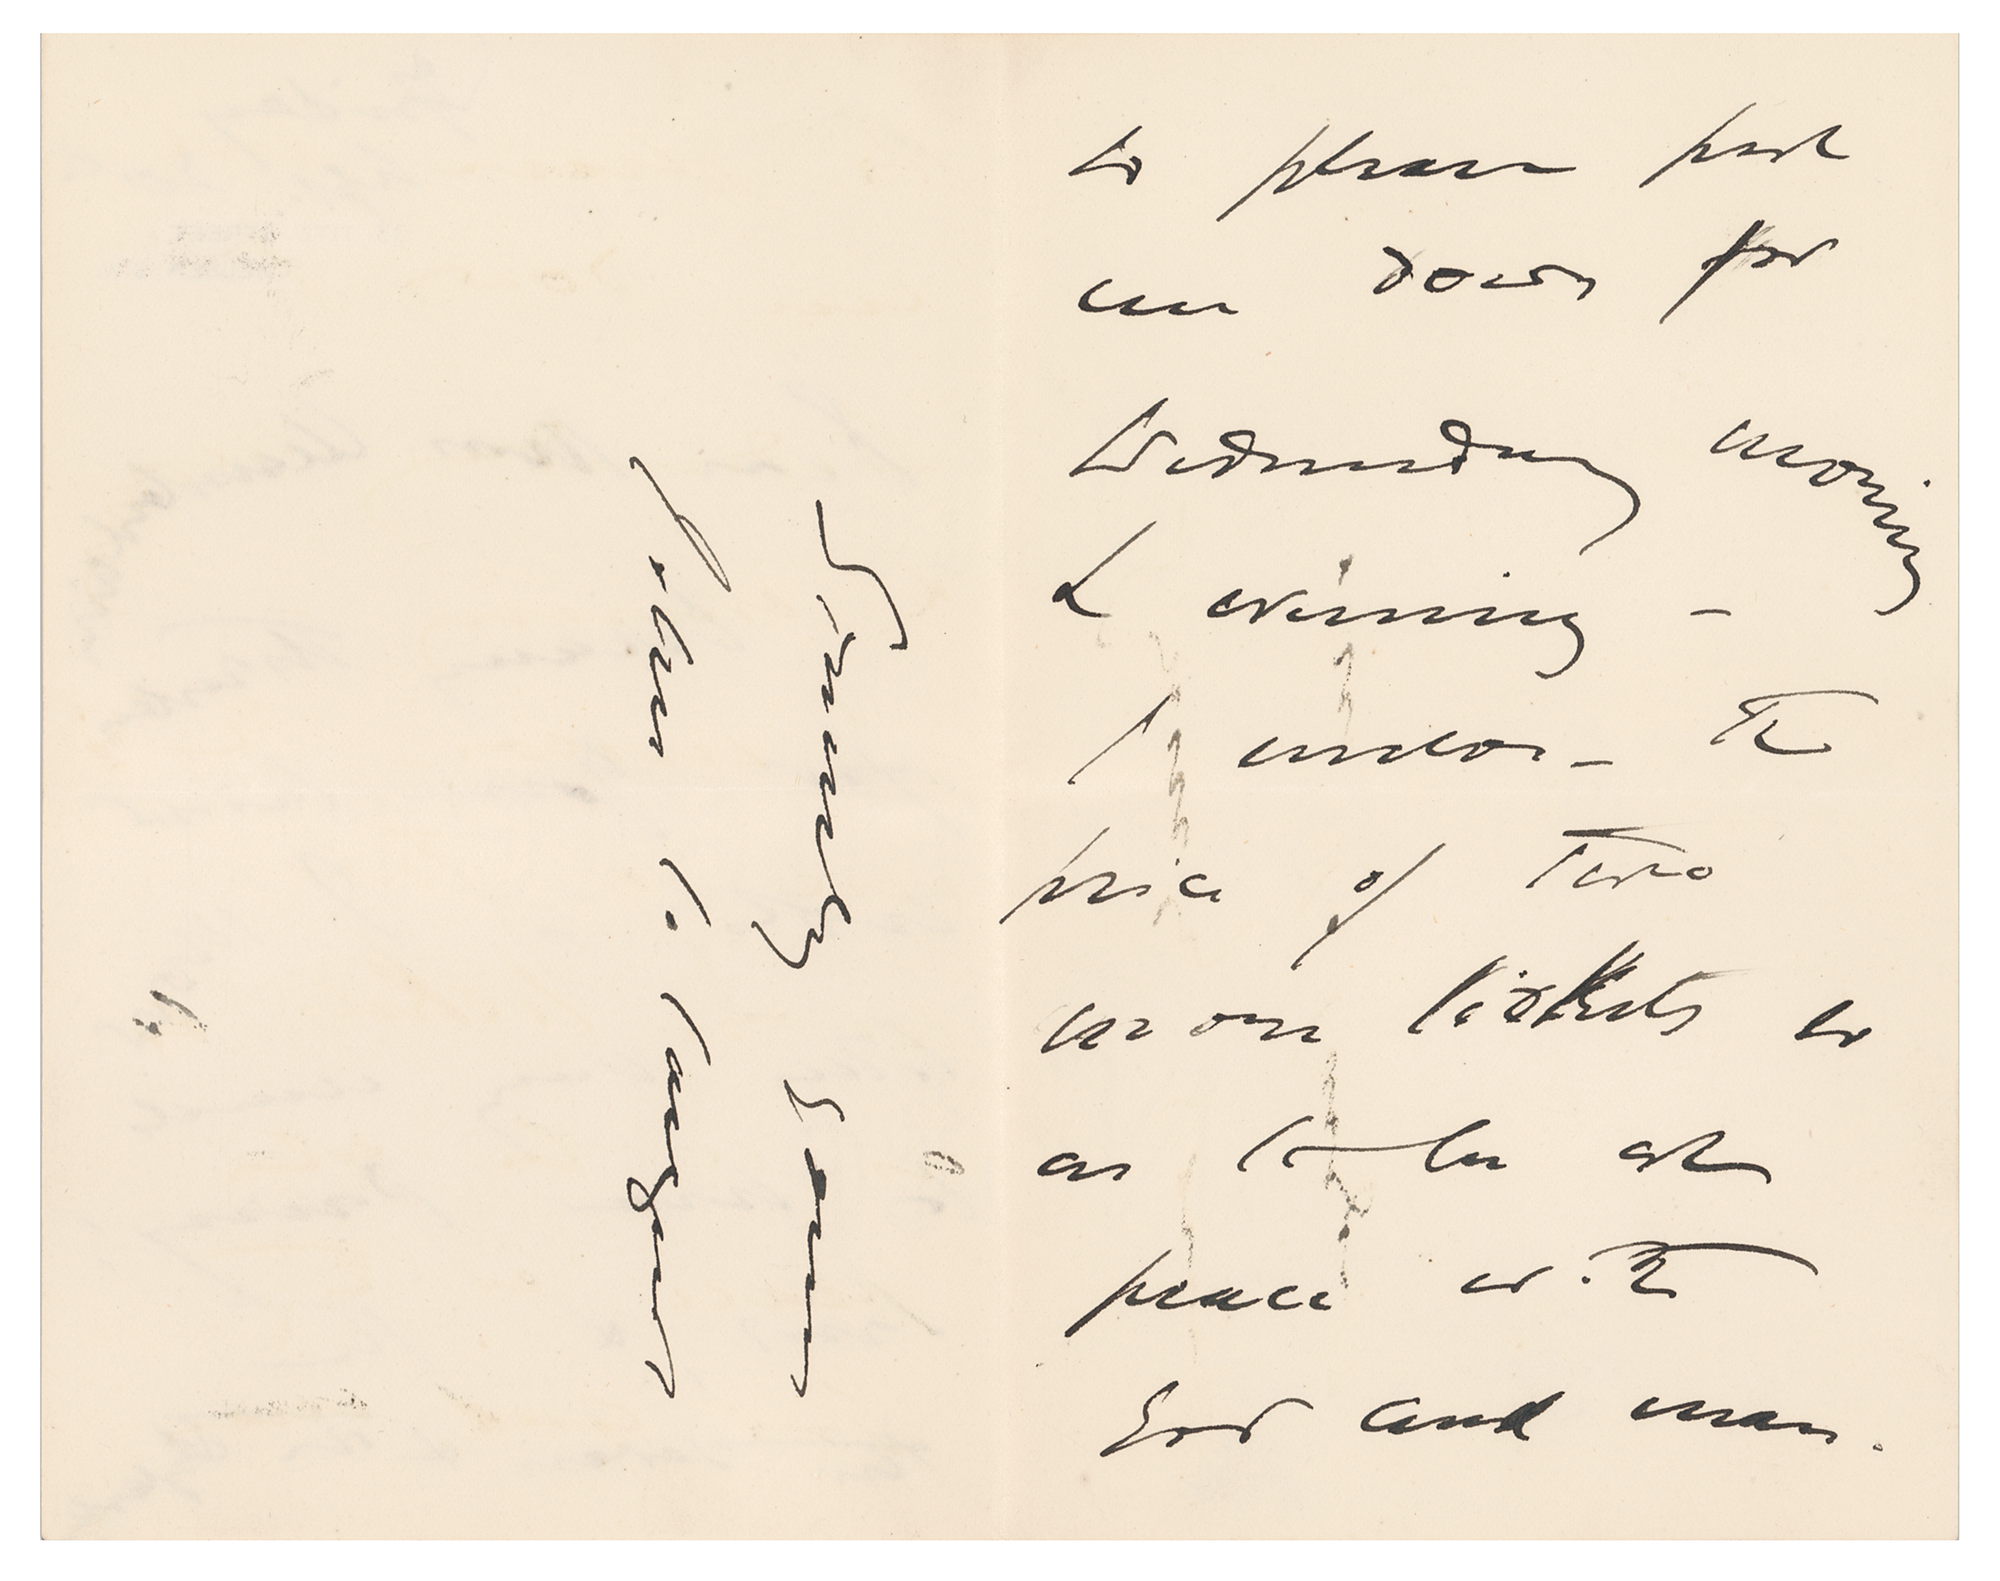 to please put
me down for
Wednesday morning
& evening -
I enclose - the
price of two
more tickets so
as to be at
peace with
God and man.
Sincerely yours
John S. Sargent